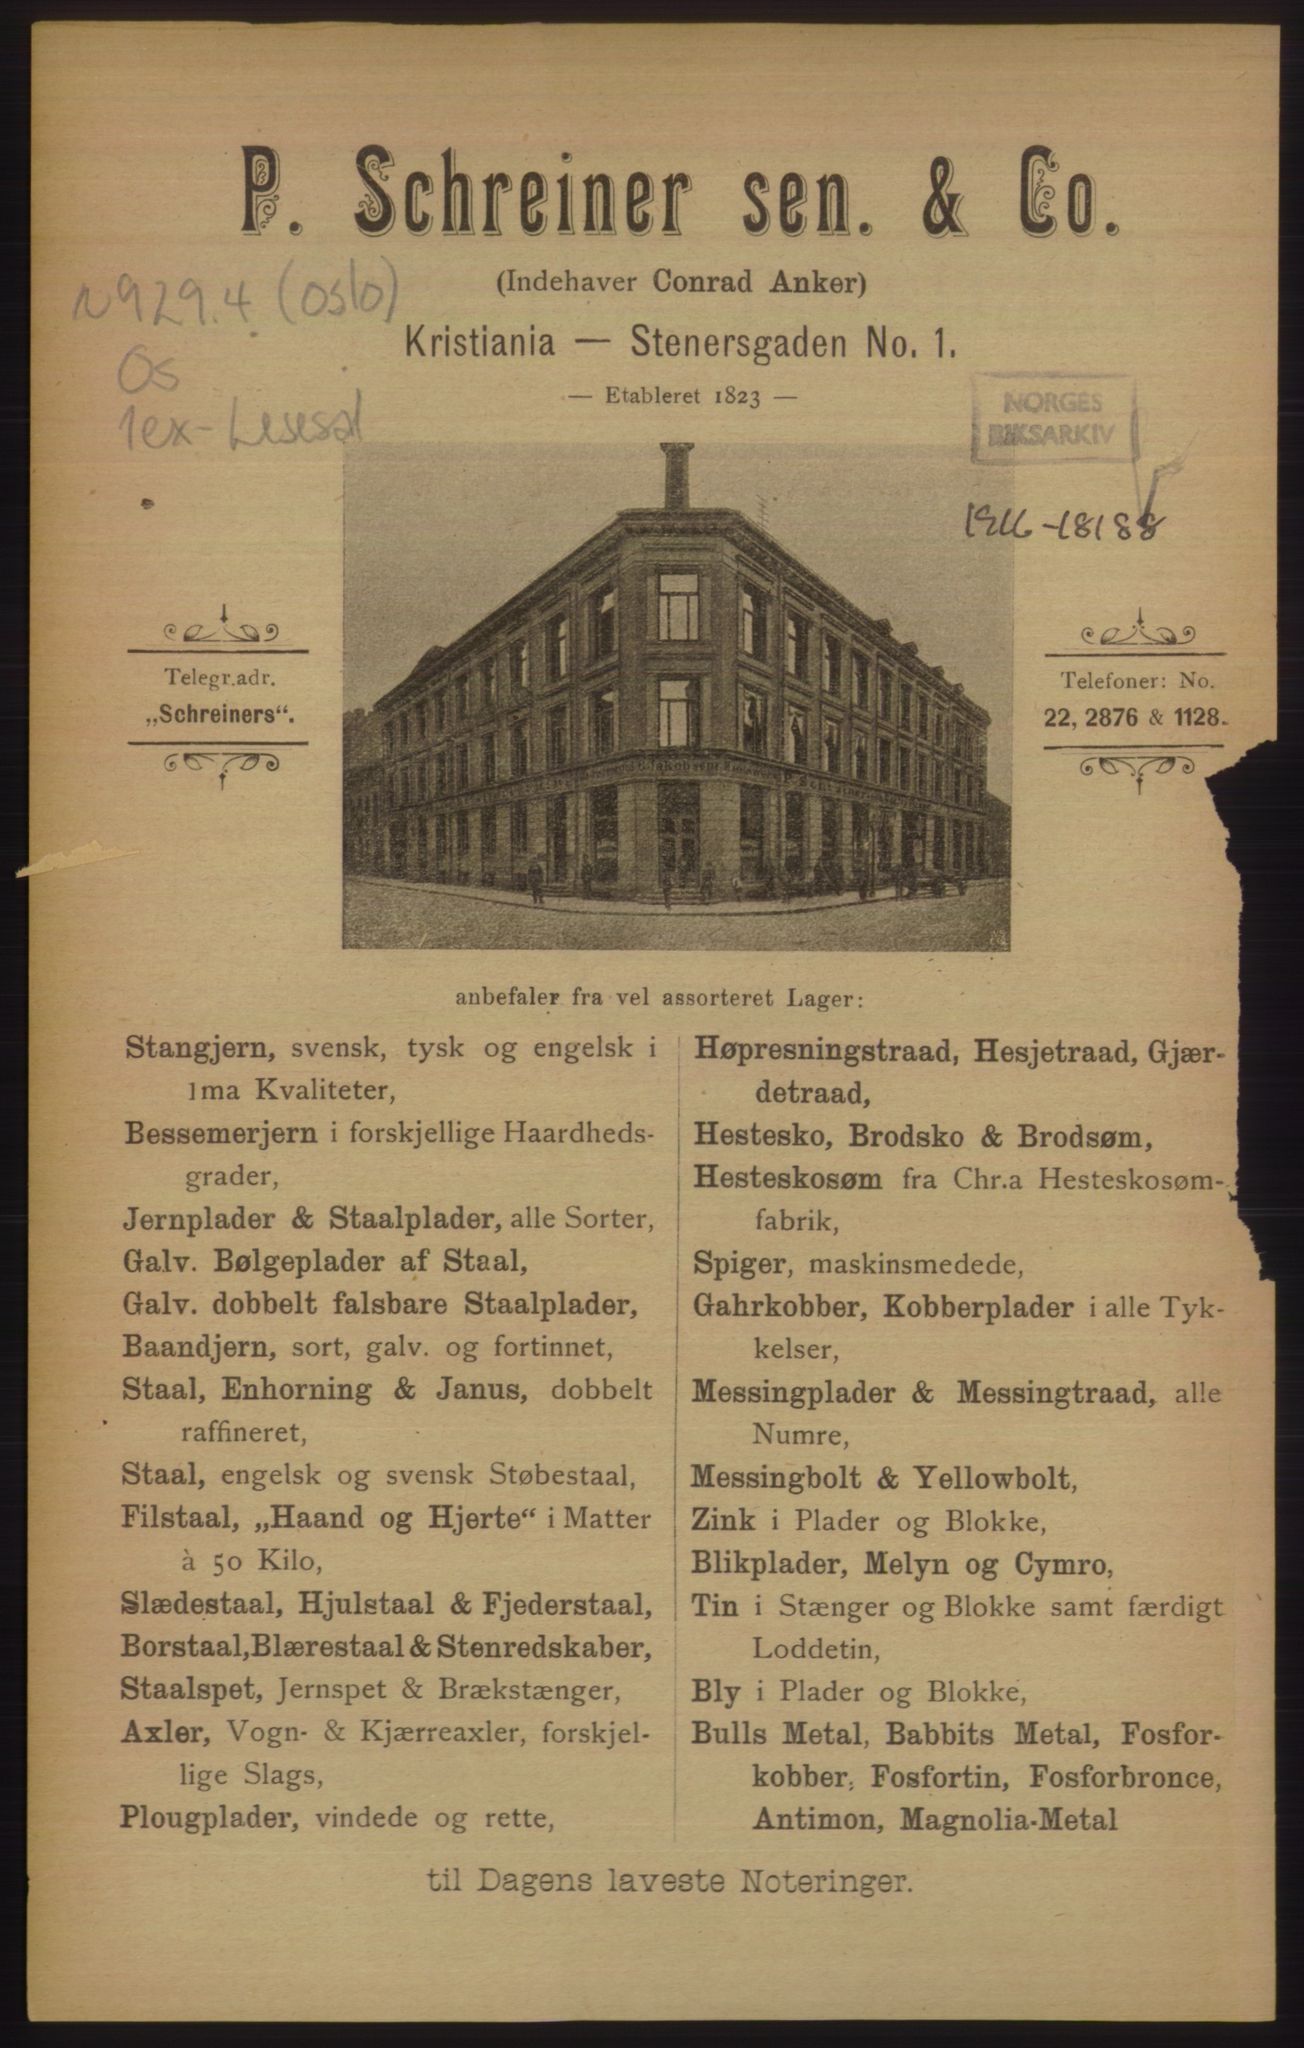 P. Schreiner sen. & Co.
(Indehaver Conrad Anker)
N929.4 (Oslo)
Kristiania — Stenersgaden No. 1.
Os
— Etableret 1823 —
1ex - Lesesal
NORGES
RIKSARKIV
18188
Telegr.adr.
„Schreiners“.
Telefoner: No.
22, 2876 & 1128.
anbefaler fra vel assorteret Lager:
Stangjern, svensk, tysk og engelsk i
1ma Kvaliteter,
Bessemerjern i forskjellige Haardheds-
grader,
Jernplader & Staalplader, alle Sorter,
Galv. Bølgeplader af Staal,
Galv. dobbelt falsbare Staalplader,
Baandjern, sort, galv. og fortinnet,
Staal, Enhorning & Janus, dobbelt
raffineret,
Staal, engelsk og svensk Støbestaal,
Filstaal, „Haand og Hjerte“ i Matter
à 50 Kilo,
Slædestaal, Hjulstaal & Fjederstaal,
Borstaal, Blærestaal & Stenredskaber,
Staalspet, Jernspet & Brækstænger,
Axler, Vogn- & Kjærreaxler, forskjel-
lige Slags,
Plougplader, vindede og rette,
Høpresningstraad, Hesjetraad, Gjær-
detraad,
Hestesko, Brodsko & Brodsøm,
Hesteskosøm fra Chr.a Hesteskosøm-
fabrik,
Spiger, maskinsmedede,
Gahrkobber, Kobberplader i alle Tyk-
kelser,
Messingplader & Messingtraad, alle
Numre,
Messingbolt & Yellowbolt,
Zink i Plader og Blokke,
Blikplader, Melyn og Cymro,
Tin i Stænger og Blokke samt færdigt
Loddetin,
Bly i Plader og Blokke,
Bulls Metal, Babbits Metal, Fosfor-
kobber, Fosfortin, Fosforbronce,
Antimon, Magnolia-Metal
til Dagens laveste Noteringer.